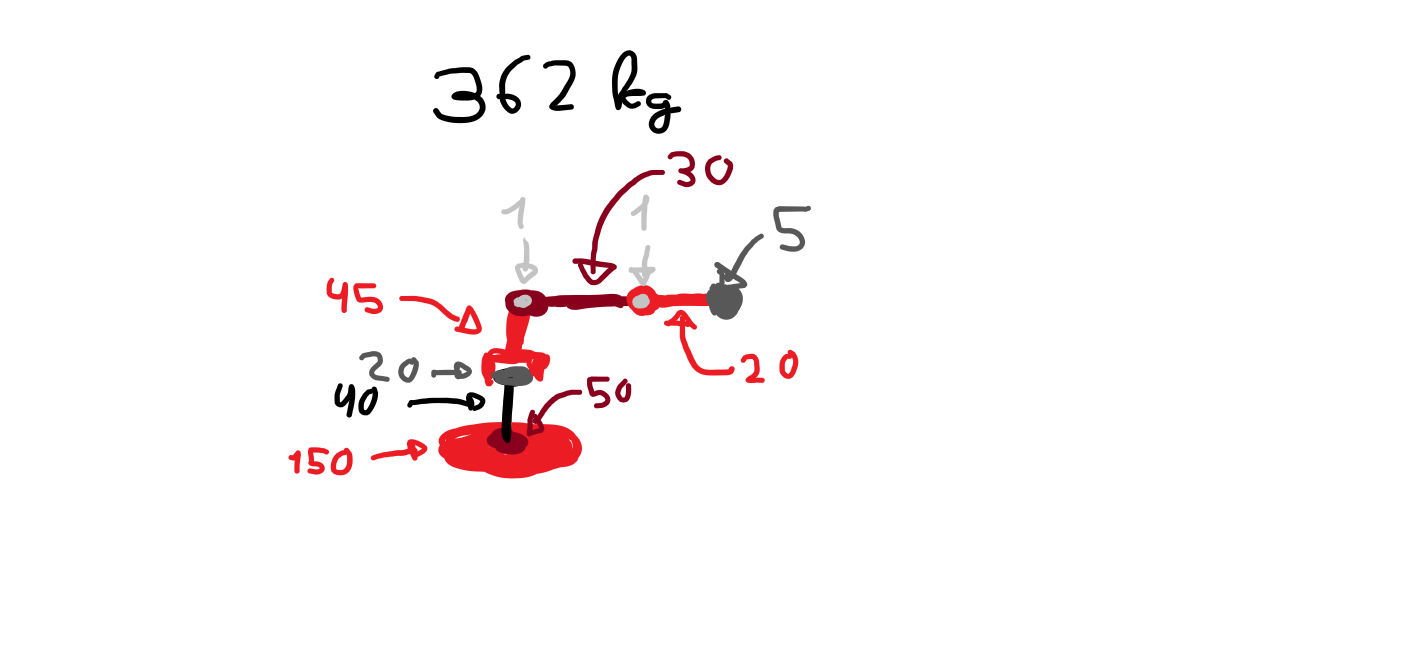 362 kg
30
1
1
5
45
20
20
40
50
150